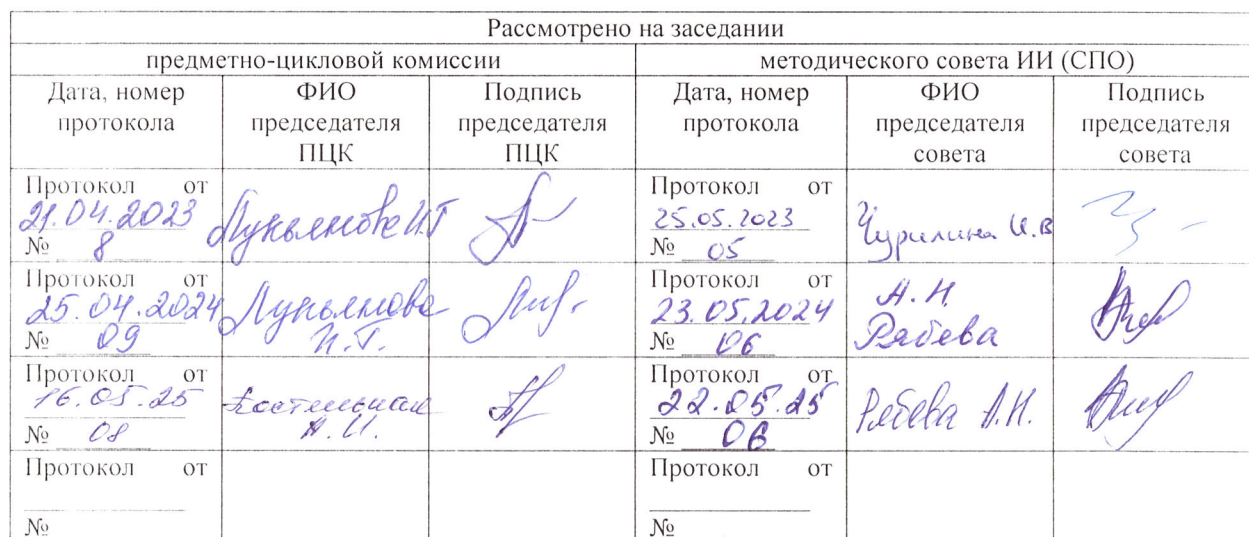 Рассмотрено на заседании
предметно-цикловой комиссии
методического совета ИИ (СПО)
Дата, номер протокола
ФИО председателя ПЦК
Подпись председателя ПЦК
Дата, номер протокола
ФИО председателя совета
Подпись председателя совета
Протокол от
21.04.2023
№ 8
Лукьянова И.Г
Протокол от
25.05.2023
№ 05
Чурилина И.В
Протокол от
25.04.2024
№ 09
Лукьянова
И.Г.
Протокол от
23.05.2024
№ 06
А.Н.
Рябева
Протокол от
16.05.25
№ 08
А.И.
Протокол от
22.05.25
№ 06
Рябева А.Н.
Протокол от
№
Протокол от
№